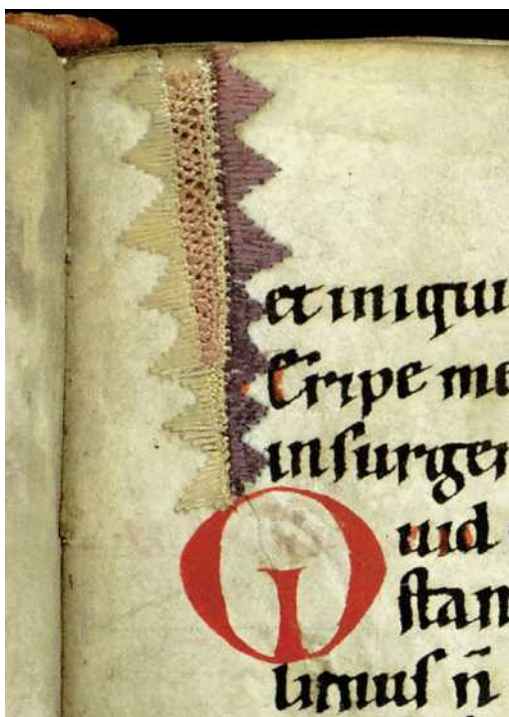 et iniqui
Eripe me
inſurgen
Quid
ſtan
limuſ n̄